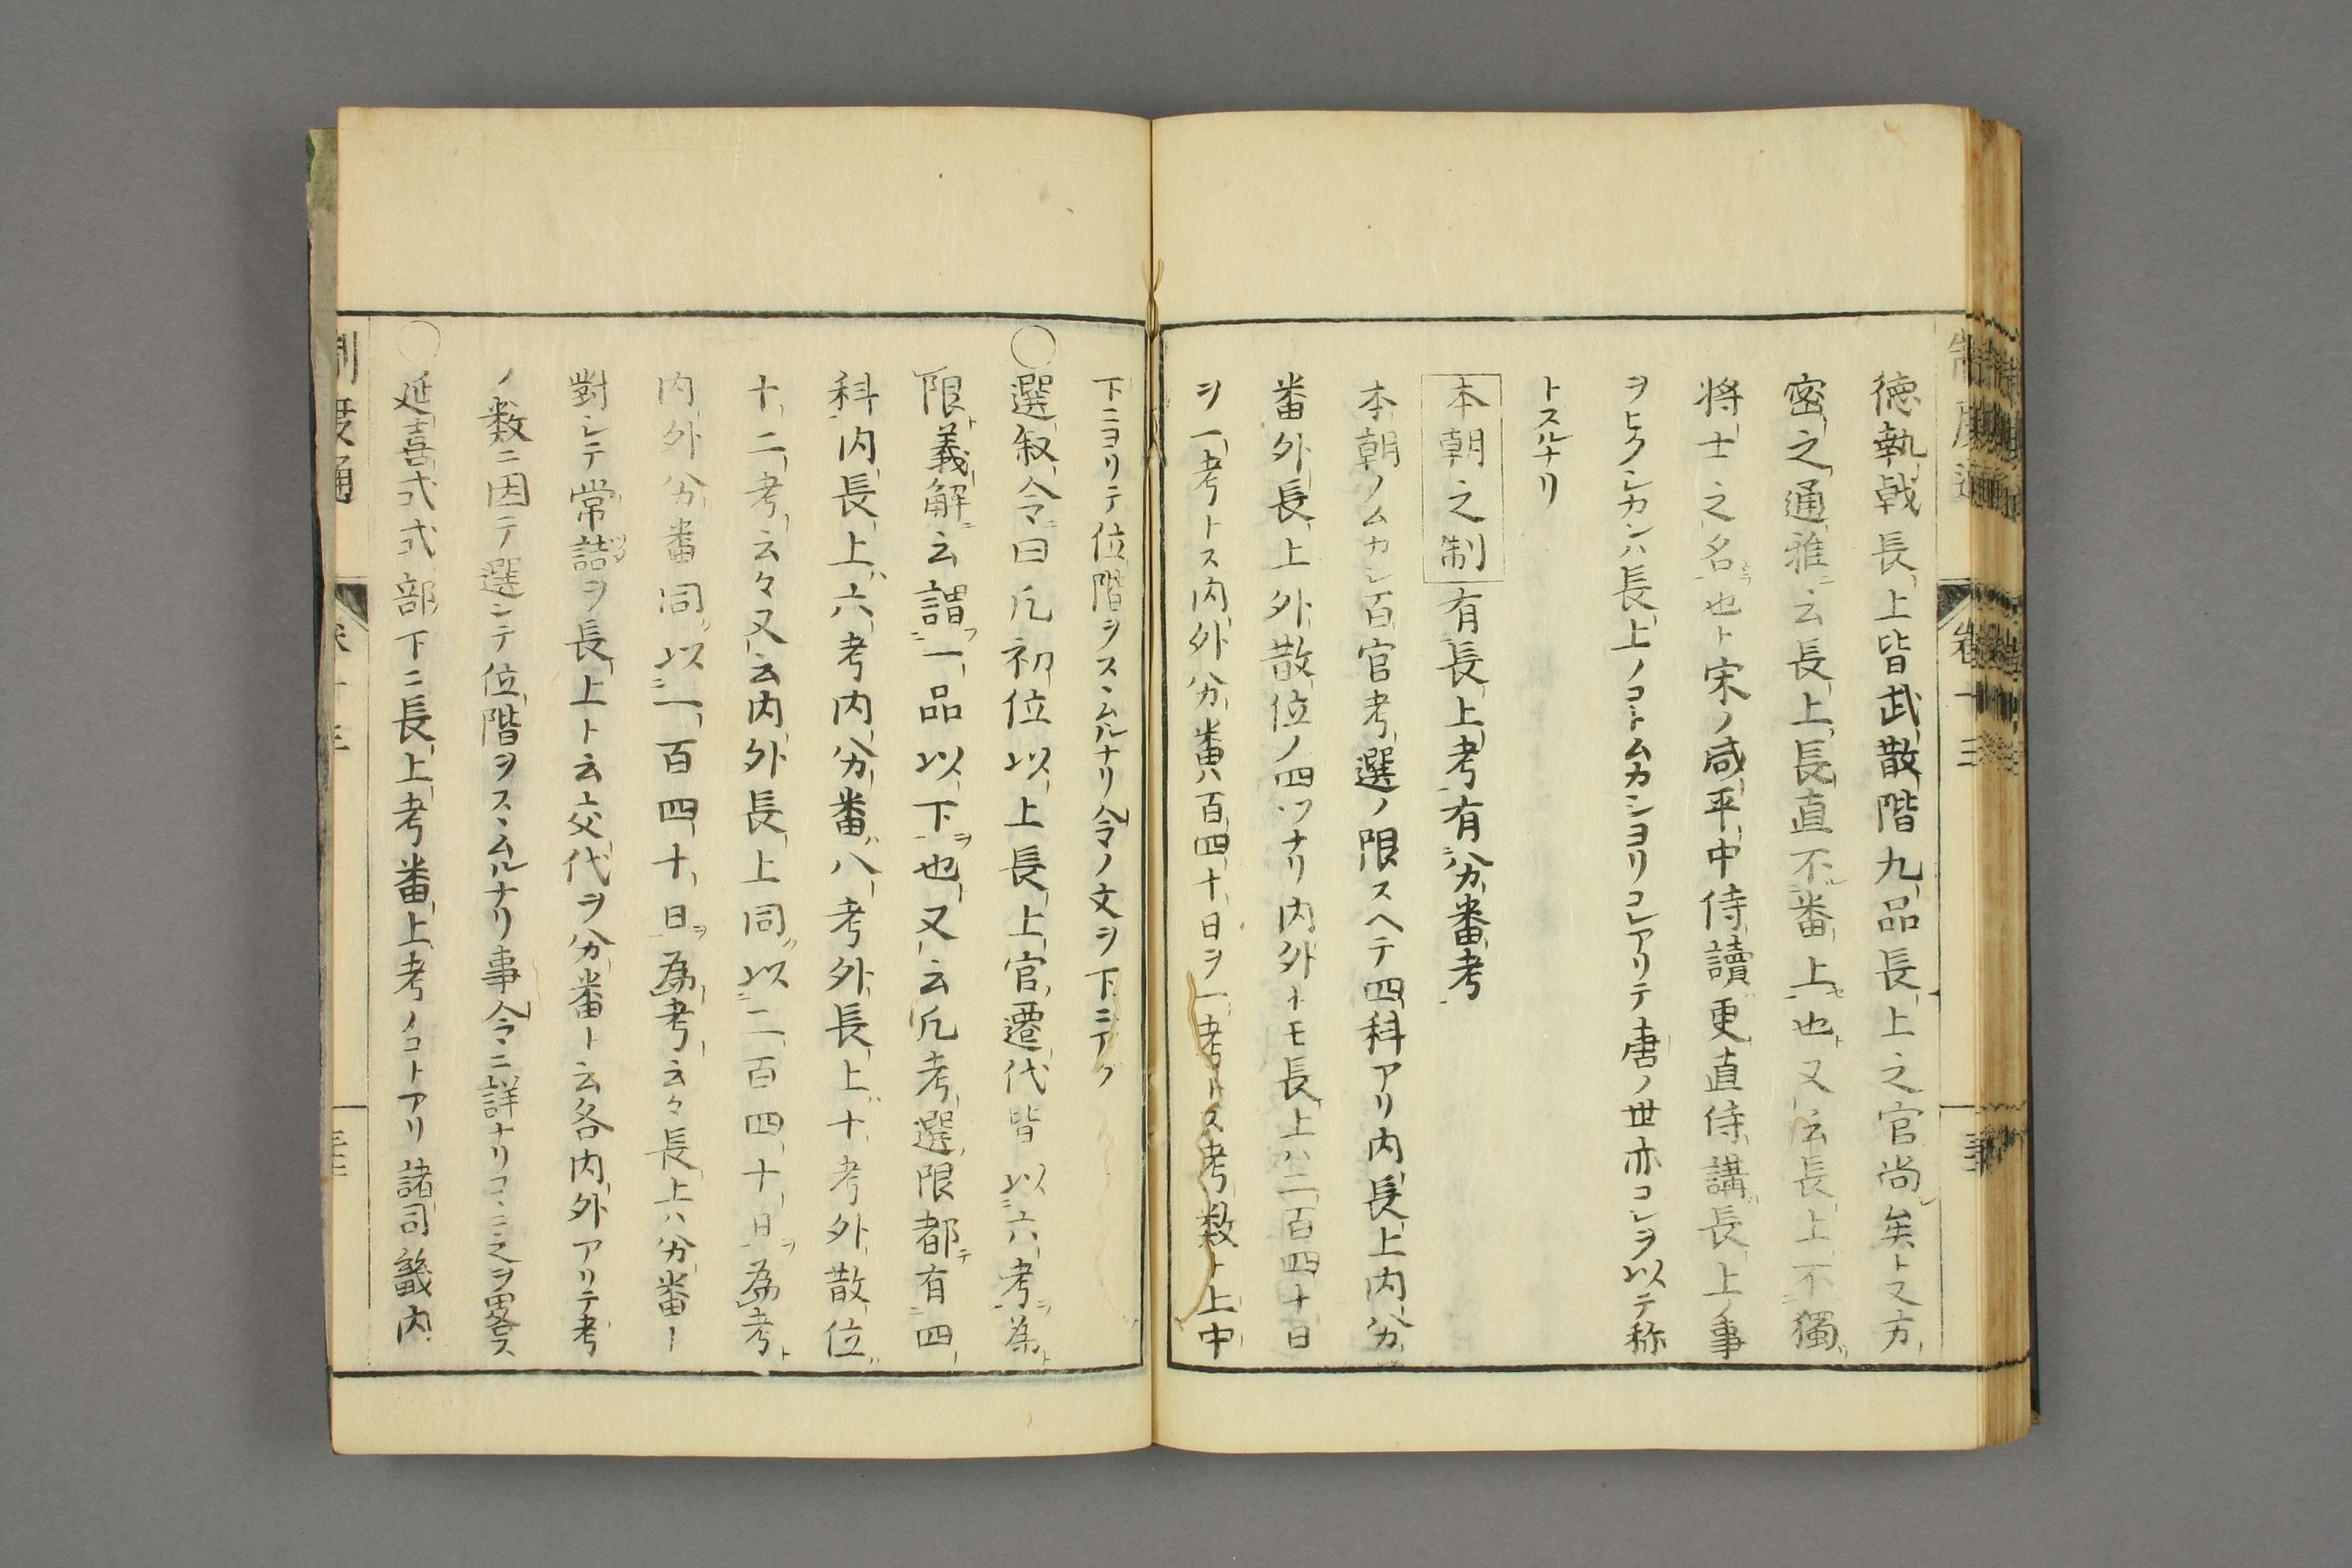 徳執戟長上皆武散階九品長上之官尚矣ト又方
密之通雅ニ云長上長直不番上也又云長上不獨
将士之名也ト宋ノ咸平中侍讀更直侍講長上ノ事
ヲヒクシカレハ長上ノコトムカシヨリコレアリテ唐ノ世亦コレヲ以テ称
トスルナリ
本朝之制 有長上考有分番考
本朝ノムカシ百官考選ノ限スヘテ四科アリ内長上内分
番外長上外散位ノ四ツナリ内外トモ長上ハ二百四十日
ヲ一考トス内外分番ハ百四十日ヲ一考トス考数ト上中
下ニヨリテ位階ヲスヽムルナリ令ノ文ヲ下ニテク
○選叙令曰凡初位以上長上官遷代皆以六考為
限義解云謂一品以下也又云凡考選限都有四
科内長上六考内分番八考外長上十考外散位
十二考云々又云内外長上同以二百四十日為考
内外分番同以一百四十日為考云々長上ハ分番ト
對シテ常詰ヲ長上ト云交代ヲ分番ト云各内外アリテ考
ノ数ニ因テ選シテ位階ヲスヽムルナリ事令ニ詳ナリコヽニ之ヲ畧ス
○延喜式式部下ニ長上考番上考ノコトアリ諸司畿内
制度通
卷十三